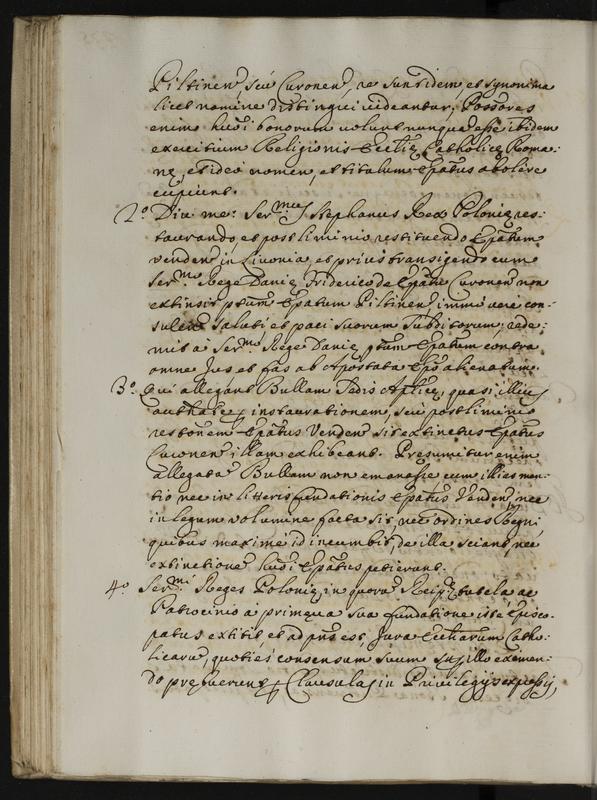 Piltinen̄, seú Curonen̄, re sunt idem et synonima
licet nomine distingui videantur, Poss̃ores
enim hui͂ bonorum volunt nunquã eſſe ibidem
exercitium Religionis Eccliæ Catholicæ Roma:
næ, et ideó nomen, et titulum Ep̃atus abolere
cupiunt.
2º. Diu me: Ser.mus Stephanus Rex Poloniæ res:
taurando et postliminio restituendo Ep̃atum
venden̄ in Livonia, et priùs transigendo cum
Ser.mo Rege Daniæ Friderico de Ep̃atu Curonen̄ non
extinxit p̃tum Ep̃atum Piltinen̄, immò verè con:
sulens saluti et paci suorum Subditorum, rede:
mit à Ser.mo Rege Daniæ p̃tum Ep̃atum contra
omne Jus et fas ab Apostata Ep̃o alienatum.
3º. Qui allegant Bullam Sedis Aplicæ, quasi illius
auth̃ate, instaurationem, seu postliminio
rest̃onem Ep̃atus Venden̄ sit extinctus Ep̃atus
Curonen̄, illam exhibeant. Presumitur enim
allegatã Bullam non emanaſſe cum illius men:
tio nec in litteris fundationis Ep̃atus Venden̄ nec
in legum volumine facta sit, nec ordines Regni
quibus maximè id incumbit, de illa sciant, nec
extinctionẽ hui͂ Ep̃atus petierunt.
4º. Ser.mi Reges Poloniæ, in quorũ Reipcæ tutela ac
Patrocinio à primæva sua fundatione iste Episco:
patus extitit, et ad p̃ns est, Jura Eccliarum Catho:
licarũ, quotiés consensum suum super illo eximen:
do præbuerunt, Clausulas in Privilegijs expreſſij,